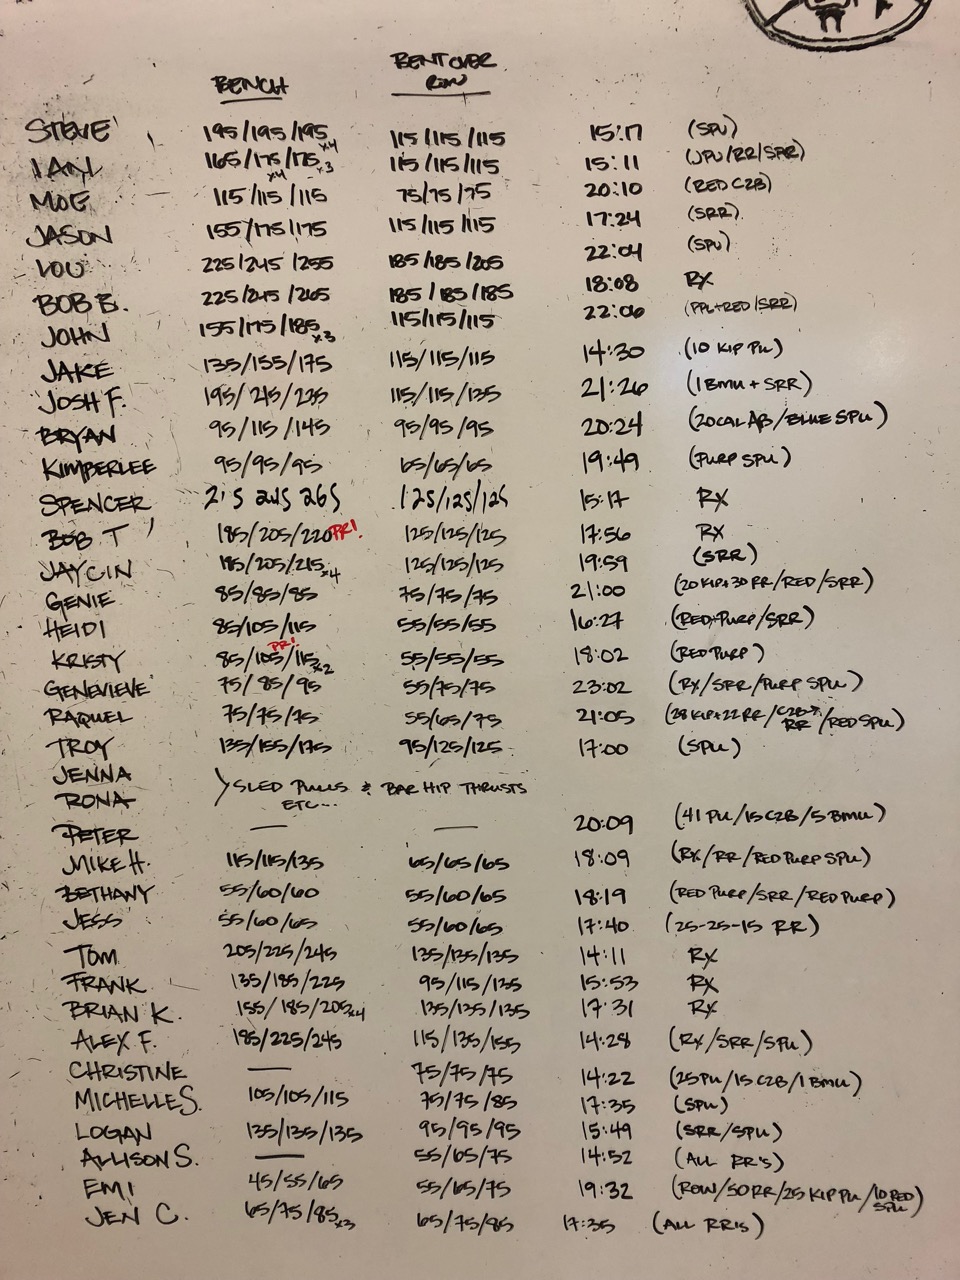 BENCH BENT OVER ROW
STEVE 195/195/195 115/115/115 15:17 (SPU)
IAN 165/175/175 x4 x4 x3 115/115/115 15:11 (JPU/RR/SRR)
MOE 115/115/115 75/75/75 20:10 (RED C2B)
JASON 155/175/175 115/115/115 17:24 (SRR)
LOU 225/245/255 185/185/205 22:04 (SPU)
BOB B. 225/245/265 185/185/185 18:08 RX
JOHN 155/175/185 x3 115/115/115 22:06 (PPL+RED/SRR)
JAKE 135/155/175 115/115/115 14:30 (10 KIP PU)
JOSH F. 195/245/235 115/115/135 21:26 (1 BMU + SRR)
BRYAN 95/115/145 95/95/95 20:24 (20CAL AB/BLUE SPU)
KIMBERLEE 95/95/95 65/65/65 19:49 (PURP SPU)
SPENCER 215 245 265 125/125/125 15:17 RX
BOB T 185/205/220 PR! 125/125/125 17:56 RX
JAYCIN 185/205/215 x4 125/125/125 19:59 (SRR)
GENIE 85/85/85 75/75/75 21:00 (20 KIP+30 RR/RED/SRR)
HEIDI 85/105/115 55/55/55 16:27 (RED+PURP/SRR)
KRISTY 85/105/115 PR! x2 55/55/55 18:02 (RED PURP)
GENEVIEVE 75/85/95 55/75/75 23:02 (RX/SRR/PURP SPU)
RAQUEL 75/75/75 55/65/75 21:05 (28 KIP+22 RR/C2B→RR/RED SPU)
TROY 135/155/175 95/125/125 17:00 (SPU)
JENNA
RONA SLED PULLS & BAR HIP THRUSTS ETC...
PETER — — 20:09 (41 PU/15 C2B/5 BMU)
MIKE H. 115/115/135 65/65/65 18:09 (RX/RR/RED PURP SPU)
BETHANY 55/60/60 55/60/65 18:19 (RED PURP/SRR/RED PURP)
JESS 55/60/65 55/60/65 17:40 (25-25-15 RR)
TOM 205/225/245 135/135/135 14:11 RX
FRANK 135/185/225 95/115/135 15:53 RX
BRIAN K. 155/185/205 x4 135/135/135 17:31 RX
ALEX F. 185/225/245 115/135/155 14:28 (RX/SRR/SPU)
CHRISTINE — 75/75/75 14:22 (25PU/15 C2B/1 BMU)
MICHELLE S. 105/105/115 75/75/85 17:35 (SPU)
LOGAN 135/135/135 95/95/95 15:49 (SRR/SPU)
ALLISON S. — 55/65/75 14:52 (ALL RR'S)
EMI 45/55/65 55/65/75 19:32 (ROW/50 RR/25 KIP PU/10 RED SPU)
JEN C. 65/75/85 x3 65/75/85 17:35 (ALL RR'S)